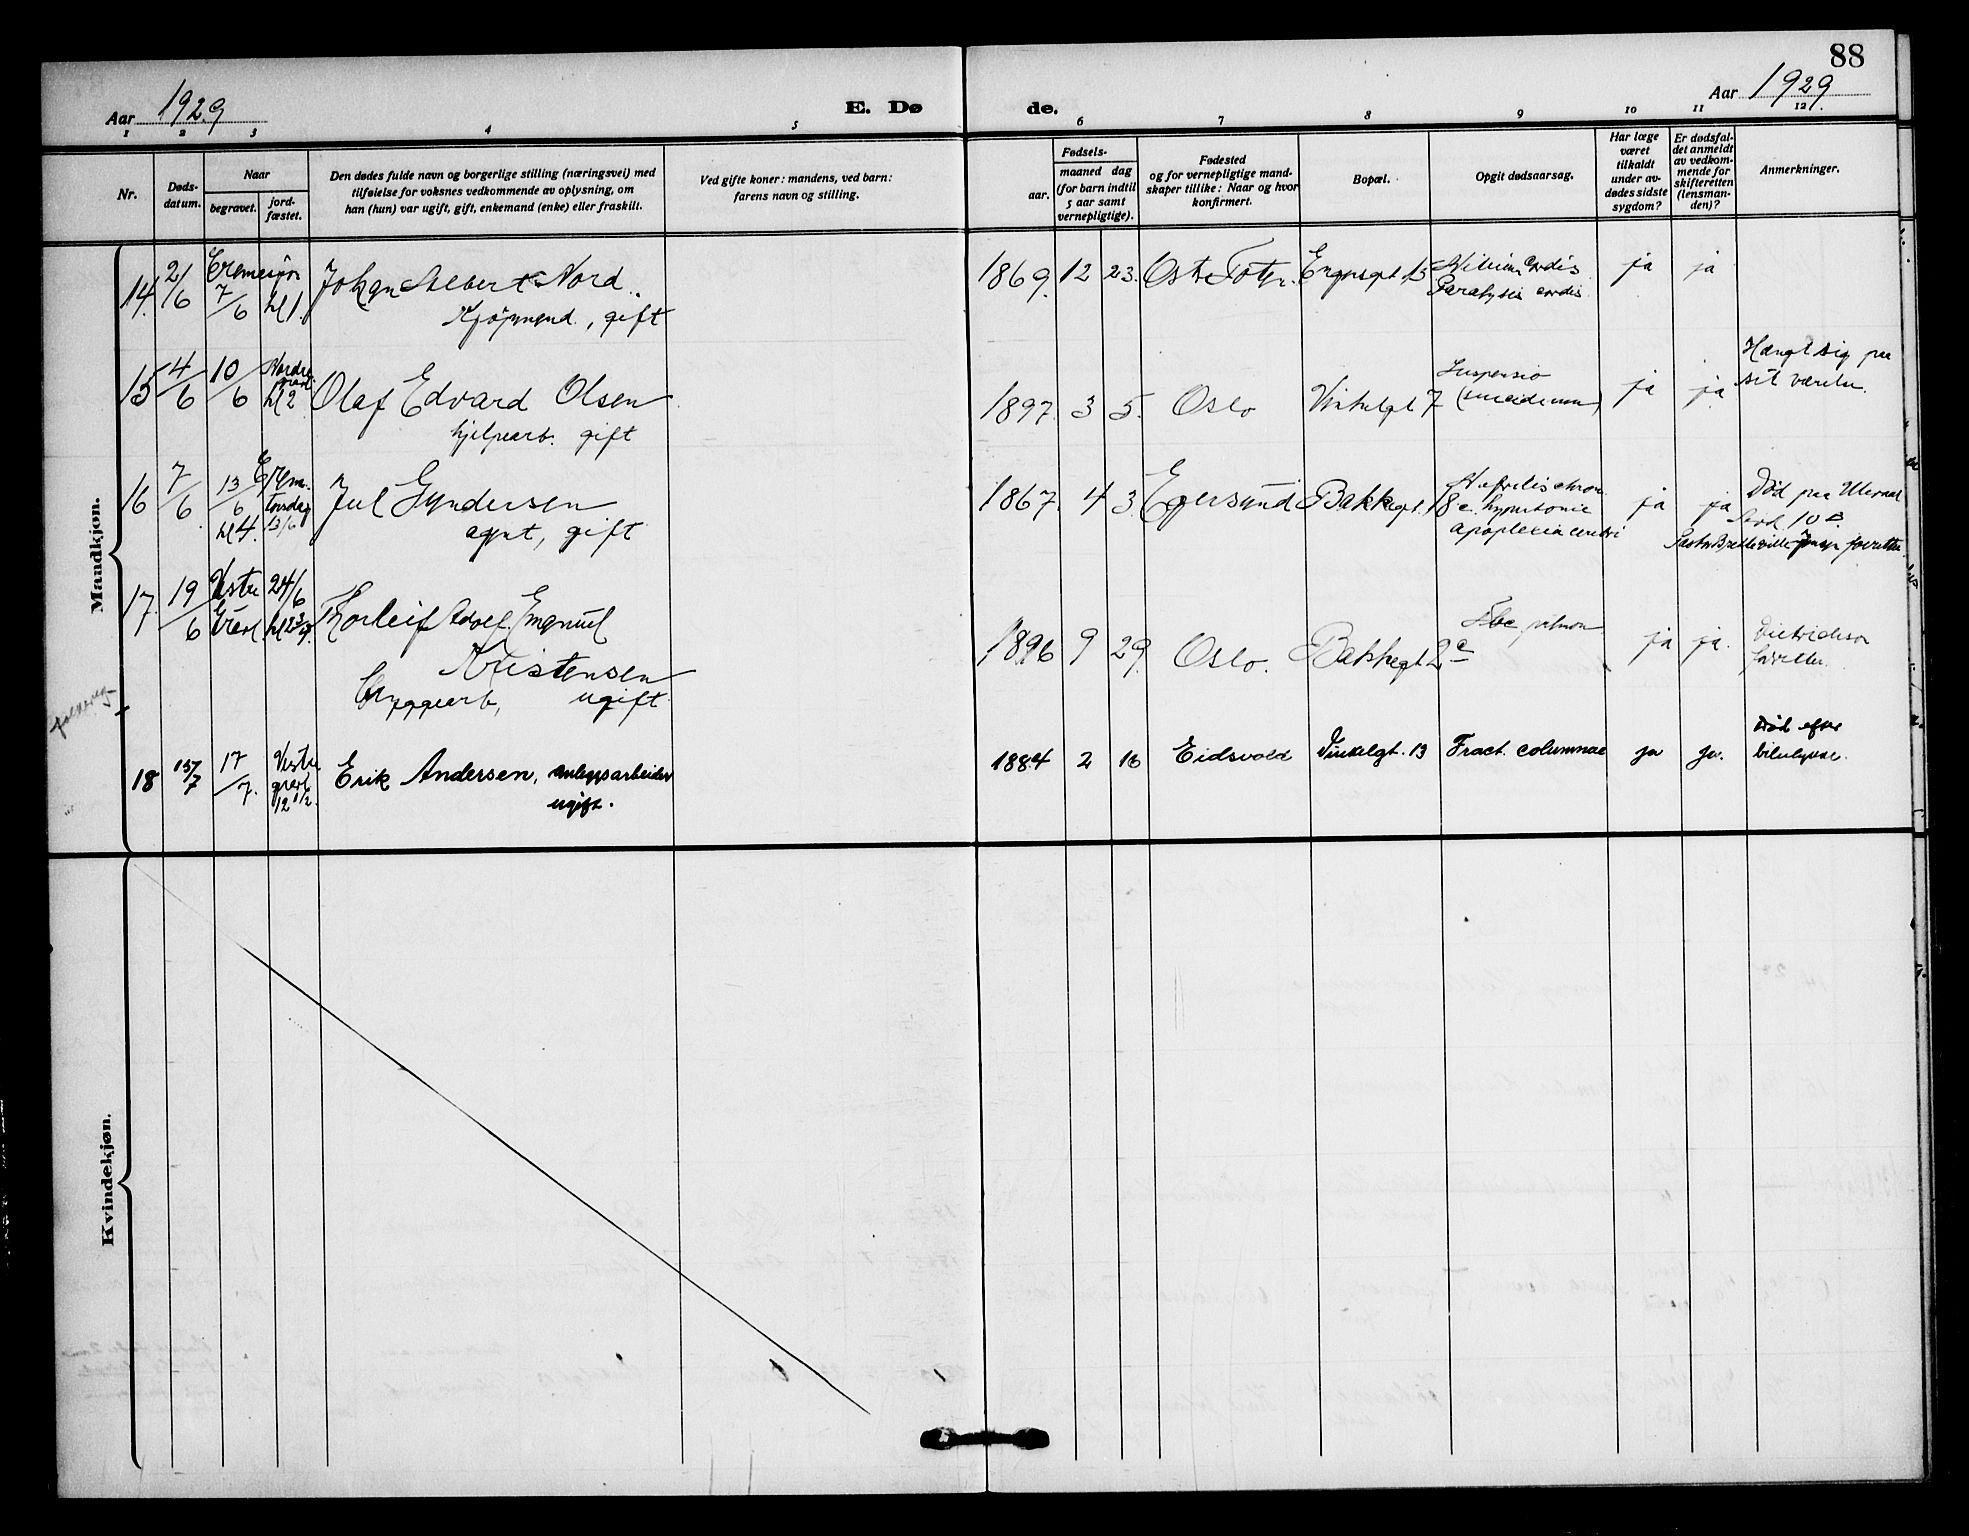 88
Aar 1929
E. Dø de.
Aar 1929
1 2 3 4 5 6 7 8 9 10 11 12
Nr.
Døds-
datum.
Naar
begravet.
jord-
fæstet.
Den dødes fulde navn og borgerlige stilling (næringsvei) med
tilføielse for voksnes vedkommende av oplysning, om
han (hun) var ugift, gift, enkemand (enke) eller fraskilt.
Ved gifte koner: mandens, ved barn:
farens navn og stilling.
Fødsels-
aar.
maaned dag
(for barn indtil
5 aar samt
vernepligtige).
Fødested
og for vernepligtige mand-
skaper tillike: Naar og hvor
konfirmert.
Bopæl.
Opgit dødsaarsag.
Har læge
været
tilkaldt
under av-
dødes sidste
sygdom?
Er dødsfal-
det anmeldt
av vedkom-
mende for
skifteretten
(lensman-
den)?
Anmerkninger.
Mandkjøn.
14. 2/6 7/6 kl 1. Johan Albert Nord
Kjøpmand, gift
1869. 12 23. Østre Toten. 13 Vitium cordis
Paralysis cordis
ja ja
15 4/6 10/6 Nordre
gravl.
kl 2 Olaf Edvard Olsen
hjelpearb. gift
1897. 3 5. Oslo Vinkelgt 7 Suspensio
(suicidium)
ja ja Hængt sig paa
sit værelse.
16 7/6 13/6 kl 4. Krem.
torsdag
13/6 Jul Gundersen
agent, gift
1867. 4 3. Egersund Bakkegt. 18 c. hypertonie
apoplexia cerebri
ja ja Død paa Ullevaal
17. 19/6 Vestre
Gravl 24/6
Thorleif Adolf Emanuel
Kristensen
Bryggearb, ugift
1896 9 29. Oslo. Bakkegt 2 c Tbc pulmon.
ja ja. Dietrichson
forretter.
18 13/7 17/7. Vestre
gravl.
12 1/2. Erik Andersen, anleggsarbeider
ugift.
1884 2 16 Eidsvold Vinkelgt. 13 Fract. columnae ja ja. Død efter
bilulykke.
Kvindekjøn.